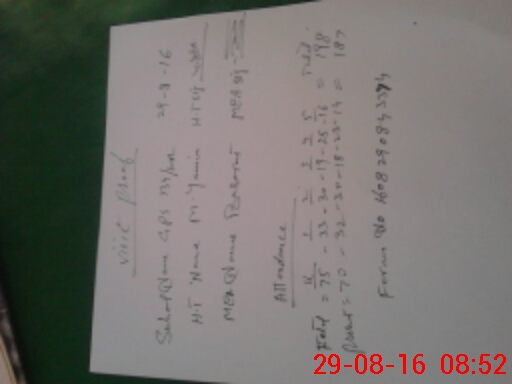 visit proof
School Name GPS 29-8-16
H.T Name M. Yamin H.T Sig
MEA Name MEA Sig
Attendance
K 1 2 3 4 5 Total
Total = 75 - 33 - 30 - 19 - 25 - 16 = 198
Present = 70 - 32 - 30 - 18 - 23 - 14 = 187
Form No
29-08-16 08:52